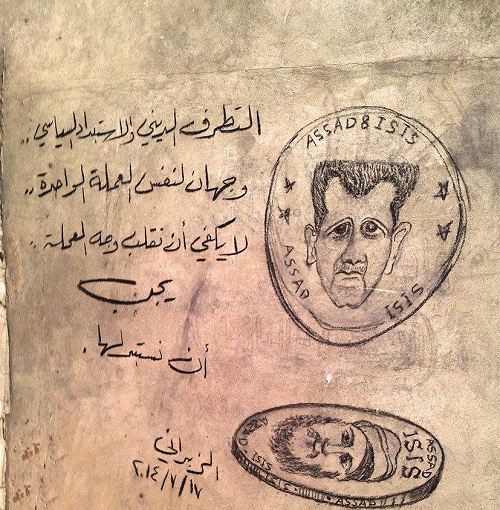 التطرف الديني والاستبداد السياسي..
وجهان لنفس العملة الواحدة..
لا يكفي أن نقلب وجه العملة.
يجب
أن نستبدلها.
ASSAD & ISIS
ASSAD
ISIS
ASSAD
ISIS
ISIS
ISIS
ASSAD
٢٠١٤/٧/١٧